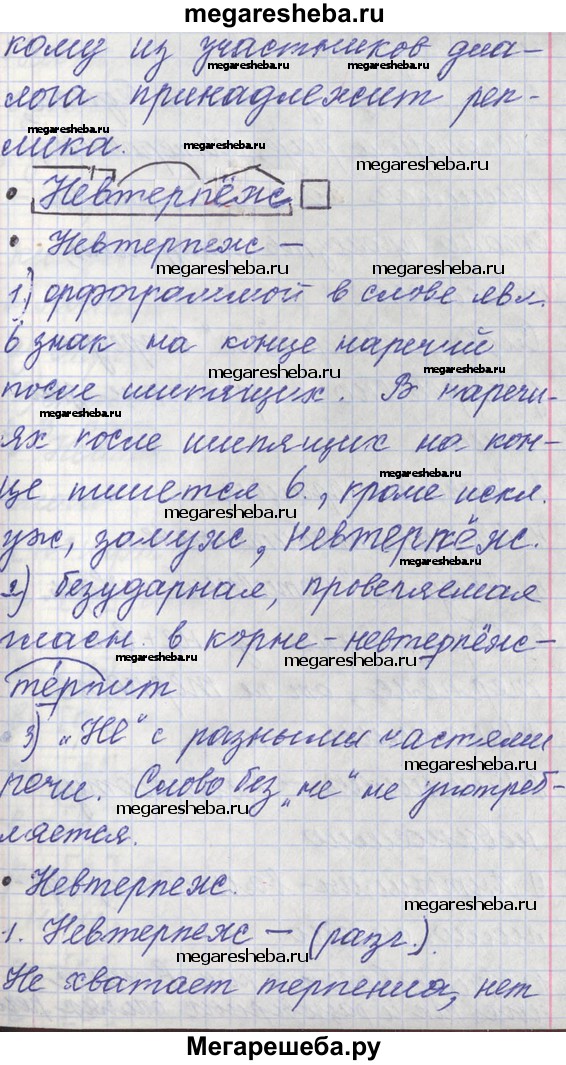 megaresheba.ru
кому из участников диа-
megaresheba.ru megaresheba.ru
лога принадлежит реп-
megaresheba.ru
лика.
megaresheba.ru
• Невтерпёж
• Невтерпеж –
megaresheba.ru megaresheba.ru
1) орфограммой в слове явл.
Ь знак на конце наречий
megaresheba.ru megaresheba.ru
после шипящих. В наречи-
megaresheba.ru
ях после шипящих на кон-
це пишется ь., кроме искл.
megaresheba.ru
уж, замуж, невтерпёж.
megaresheba.ru
2) безударная, проверяемая
гласн. в корне – невтерпёж –
megaresheba.ru megaresheba.ru
те́рпит
3) „Не" с разными частями
megaresheba.ru
речи. Слово без „не" не употреб-
megaresheba.ru
ляется.
• Невтерпеж.
megaresheba.ru
1. Невтерпеж – (разг.).
megaresheba.ru
Не хватает терпения, нет
Мегарешеба.ру